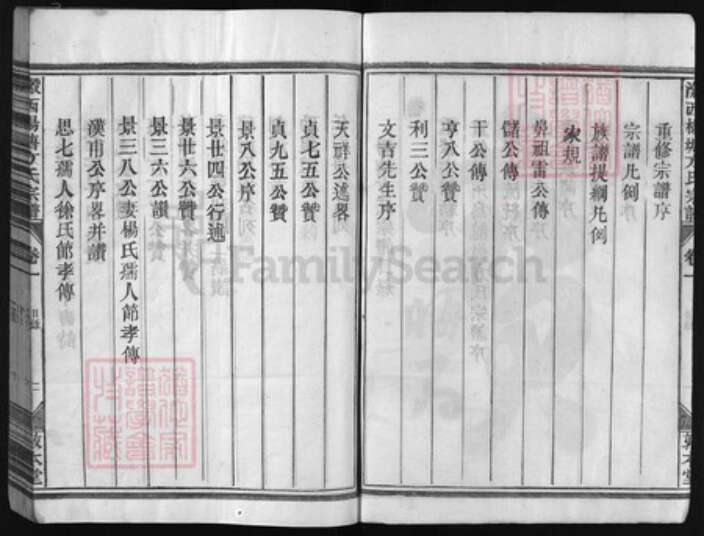 重修宗譜序
宗譜凡例
族譜提綱凡例
家規
鼻祖雷公傳
儲公傳
干公傳
亨八公贊
利三公贊
文吉先生序
天祥公述畧
貞七五公贊
貞九五公贊
景八公序
景廿四公行述
景廿六公贊
景三六公韻
景三八公妻楊氏孺人節孝傳
漢甫公序畧并讚
思七孺人徐氏節孝傳
方氏宗譜
卷一
目錄
敦本堂
FamilySearch